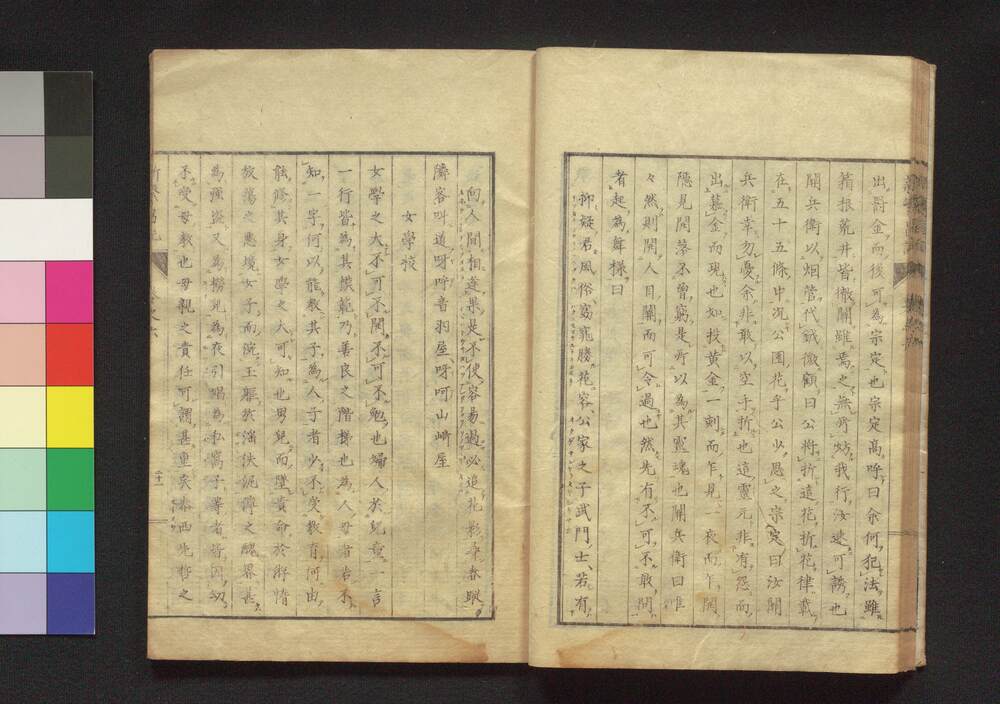 出罰金而後可為宗定也宗定高呼曰余何犯法雖
箱根荒井皆徹關雖焉之無所妨我行汝速可誘也
関兵衛以烟管代鉞徹顧曰公将折這花折花律載
在五十五條中况公園花乎公少思之宗定曰汝関
兵衛幸勿憂余非敢以空手折也這靈元非有怨而
出墓金而現也如投黄金一刻而乍見一夜而乍関
隠見開落不曾窮是所以為其靈魂也関兵衛曰唯
々然則関人目關而可令過也然先有不可不敢問
者起為舞様曰
抑疑君風俗窈窕勝花容公家之子武門士若有
向人間相逢果是不使容易過必追花影尋春眠
隣客叫道呀呼音羽屋呀呵山崎屋
女學校
女學之大不可不開不可不勉也婦人於兒童一言
一行皆為其模範乃善良之階梯也為人母者苟不
知一字何以能教其子為人子者少不受教育何由
能修其身女學之大可知也男兒而墮貴命於游惰
放蕩之悪境女子而涴玉軀於淄佚汚薄之醜界甚
為強盗又為掏兒為夜引娼為私窩子等者皆因幼
不受母教也母親之責任可謂甚重矣泰西先哲之